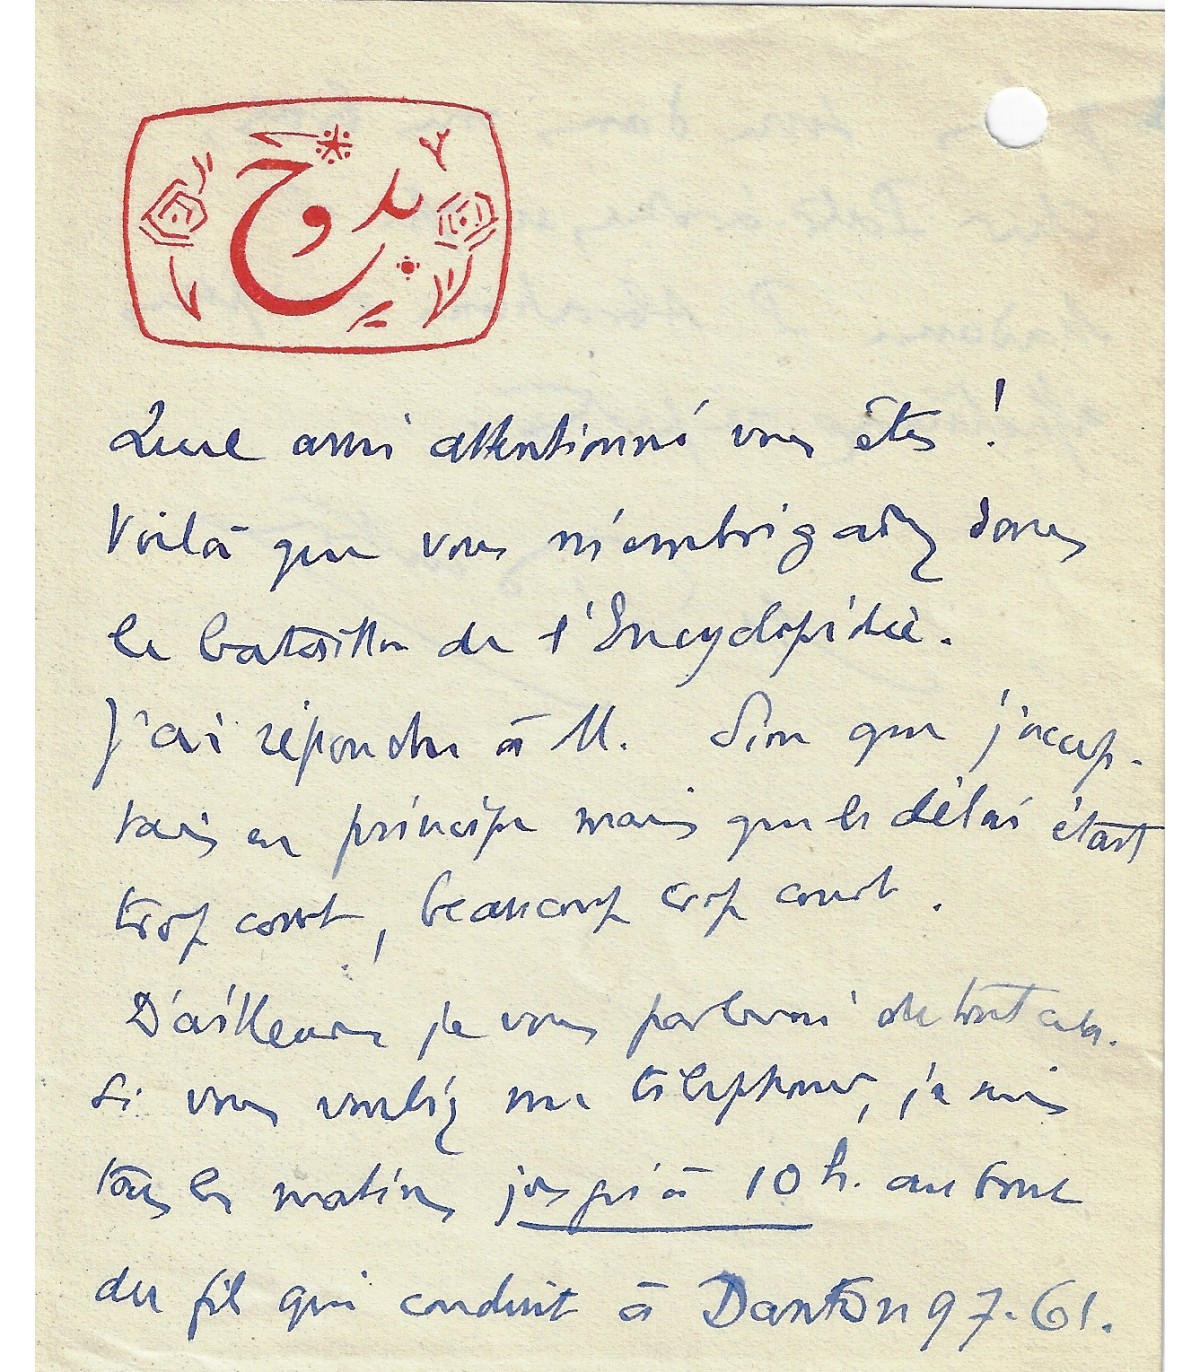 بدوح
Quel ami attentionné vous êtes !
Voilà que vous m'embrigadez dans
le bataillon de l'Encyclopédie.
J'ai répondu à M. que j'accep-
tais en principe mais que le délai était
trop court, beaucoup trop court.
D'ailleurs je vous parlerai de tout cela.
Si vous voulez me téléphoner, je suis
tous les matins jusqu'à 10 h. au bout
du fil qui conduit à Danton 97-61.